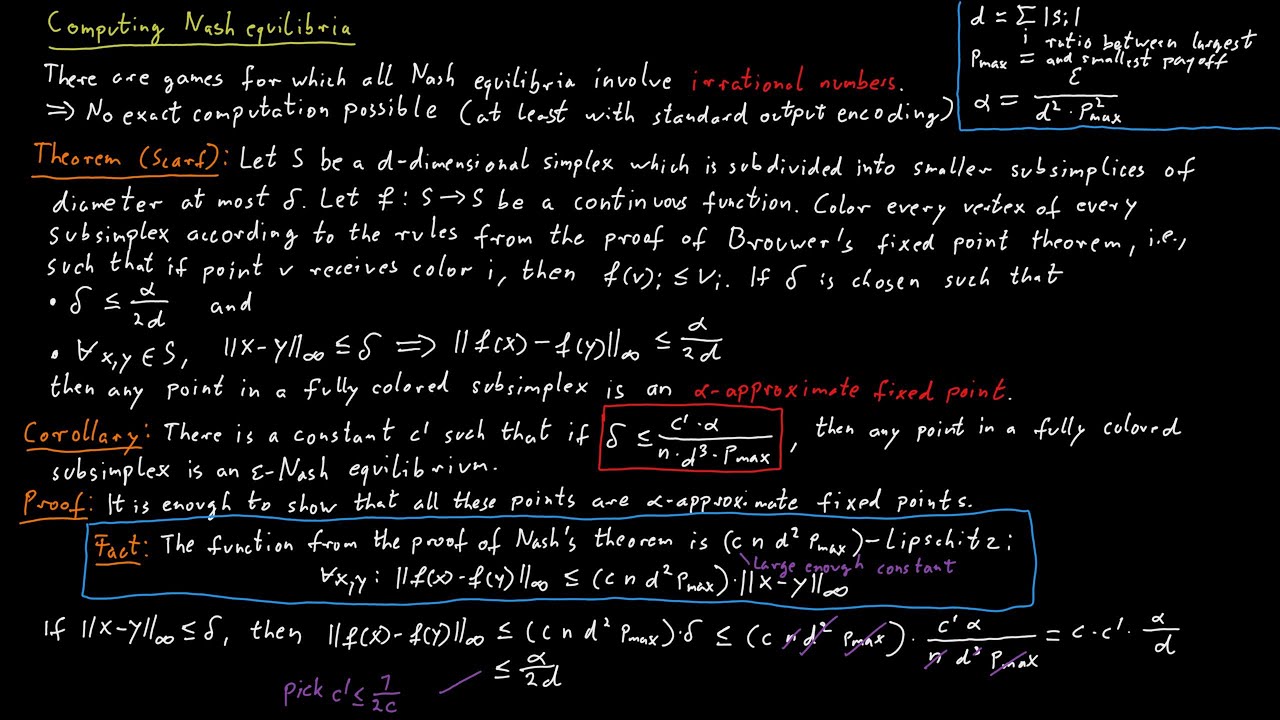 Computing Nash equilibria
d = Σ_i |S_i|
P_max = ratio between largest and smallest payoff
α = ε / (d² · P²_max)
There are games for which all Nash equilibria involve irrational numbers.
⇒ No exact computation possible (at least with standard output encoding)
Theorem (Scarf): Let S be a d-dimensional simplex which is subdivided into smaller subsimplices of
diameter at most δ. Let f : S → S be a continuous function. Color every vertex of every
subsimplex according to the rules from the proof of Brouwer's fixed point theorem, i.e.,
such that if point v receives color i, then f(v)_i ≤ v_i. If δ is chosen such that
• δ ≤ α/2d and
• ∀x,y ∈ S, ||x-y||_∞ ≤ δ ⇒ ||f(x) - f(y)||_∞ ≤ α/2d
then any point in a fully colored subsimplex is an α-approximate fixed point.
Corollary: There is a constant c' such that if δ ≤ c'·α / (n·d³·P_max), then any point in a fully colored
subsimplex is an ε-Nash equilibrium.
Proof: It is enough to show that all these points are α-approximate fixed points.
Fact: The function from the proof of Nash's theorem is (c n d² P_max)-Lipschitz:
large enough constant
∀x,y: ||f(x)-f(y)||_∞ ≤ (c n d² P_max)·||x-y||_∞
If ||x-y||_∞ ≤ δ, then ||f(x)-f(y)||_∞ ≤ (c n d² P_max)·δ ≤ (c n d² P_max) · c' α / (n d³ P_max) = c·c'·α/d
≤ α/2d
pick c' ≤ 1/2c